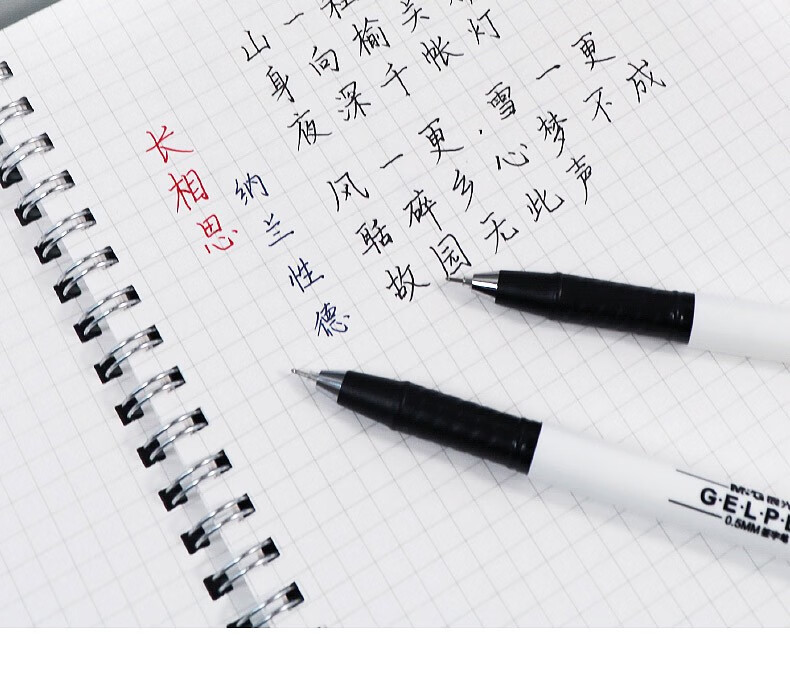 长相思
纳兰性德
山一程
身向榆关
夜深千帐灯
风一更，雪一更
聒碎乡心梦不成
故园无此声
M&G晨
G·E·L·P
0.5MM 签字笔